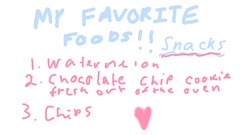 MY FAVORITE
FOODS!!
Snacks
1. Watermelon
2. Chocolate chip cookie
fresh out of the oven
3. Chips